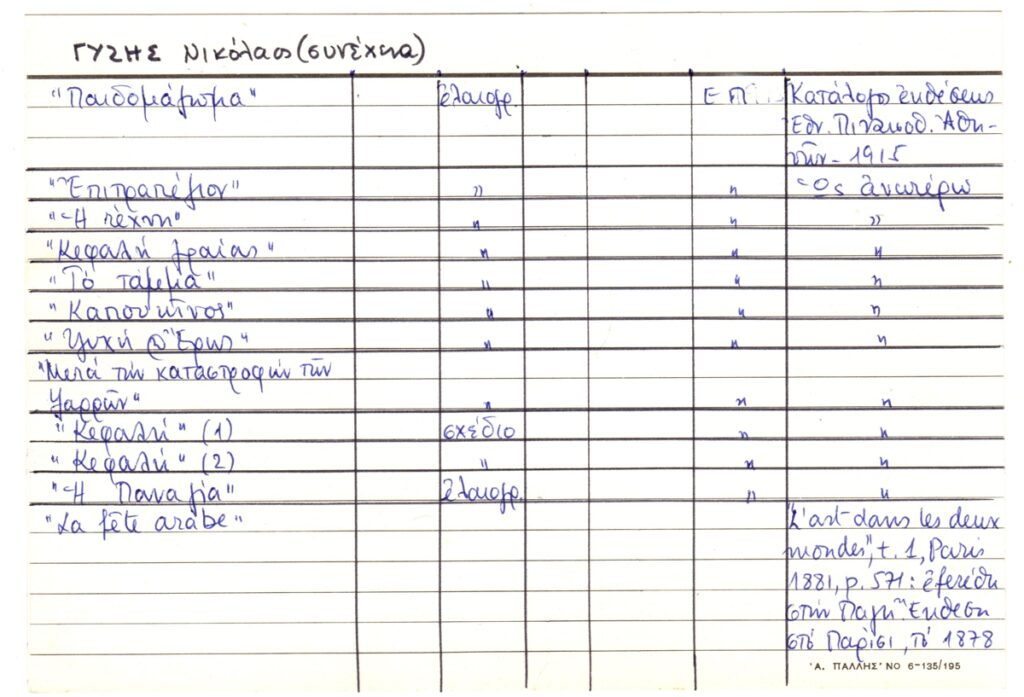 ΓΥΖΗΣ Νικόλαος (συνέχεια)
"Παιδομάζωμα" ἐλαιογρ. Ε.Π. Κατάλογος ἐκθέσεως
Ἐθν. Πινακοθ. Ἀθη-
νῶν - 1915
"Ἐπιτραπέζιον" " " Ὡς ἀνωτέρω
"Ἡ τέχνη" " " "
"Κεφαλή γραίας" " " "
"Τό τάμμα" " " "
"Καπουκῖνος" " " "
"Ψυχή @ Ἔρως" " " "
"Μετά τήν καταστροφήν τῶν
Ψαρρῶν" " " "
"Κεφαλή" (1) σχέδιο " "
"Κεφαλή" (2) " " "
"Ἡ Παναγία" ἐλαιογρ. " "
"La fête arabe" "L'art dans les deux
mondes", t. 1, Paris
1881, p. 571: ἐξετέθη
στήν Παγκ. Ἔκθεση
στό Παρίσι, τό 1878
'Α. ΠΑΛΛΗΣ' ΝΟ 6-135/195